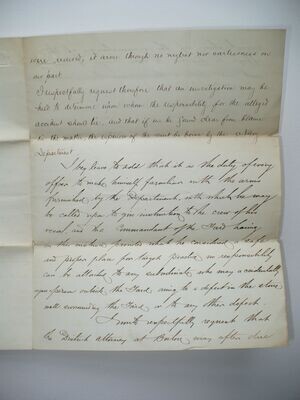 were received, it arose through no neglect nor carelessness on
our part.
I respectfully request therefore that an investigation may be
held to determine upon whom the responsibility for the alleged
accident should lie, and that if we be found clear from blame
in the matter the expenses of the suit be borne by the
Department.
I beg leave to add that it is the duty of every
officer to make himself familiar with the arms
furnished by the Department, with which he may
be called upon to give instruction to the crew of his
vessel, and the Commandant of the Yard having
in this matter provided what he considered a safe
and proper place for target practice no responsibility
can be attached to any subordinate who may accidentally
a person outside the Yard, owing to a defect in the stone
wall surrounding the Yard, or to any other defect.
I would respectfully request that
the District Attorney at Boston may after due